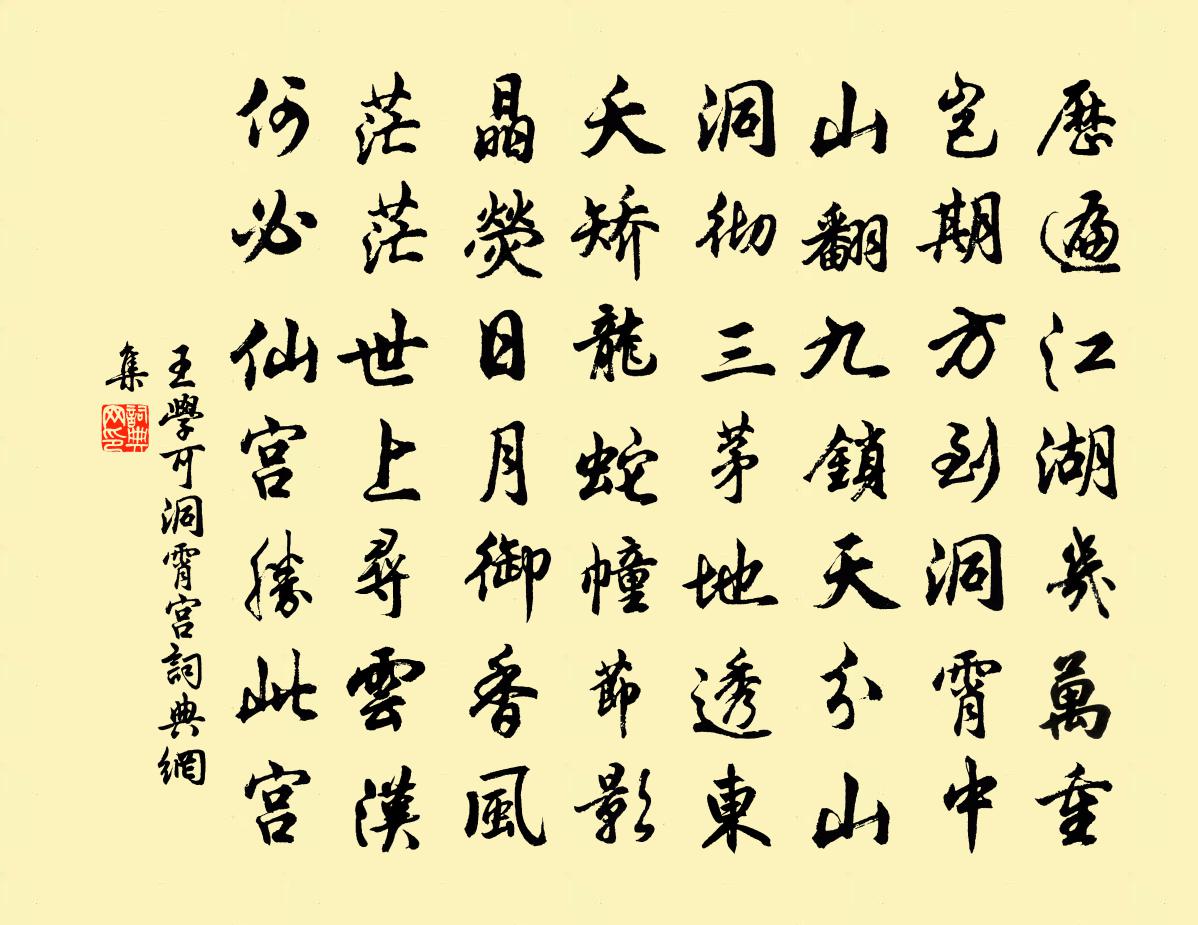 歷遍江湖幾萬重
豈期方到洞霄中
山翻九鎖天分山
洞徹三茅地透東
夭矯龍蛇幢節影
晶熒日月御香風
茫茫世上尋雲漢
何必仙宮勝此宮
王學可洞霄宮詞典網
集
詞典網印